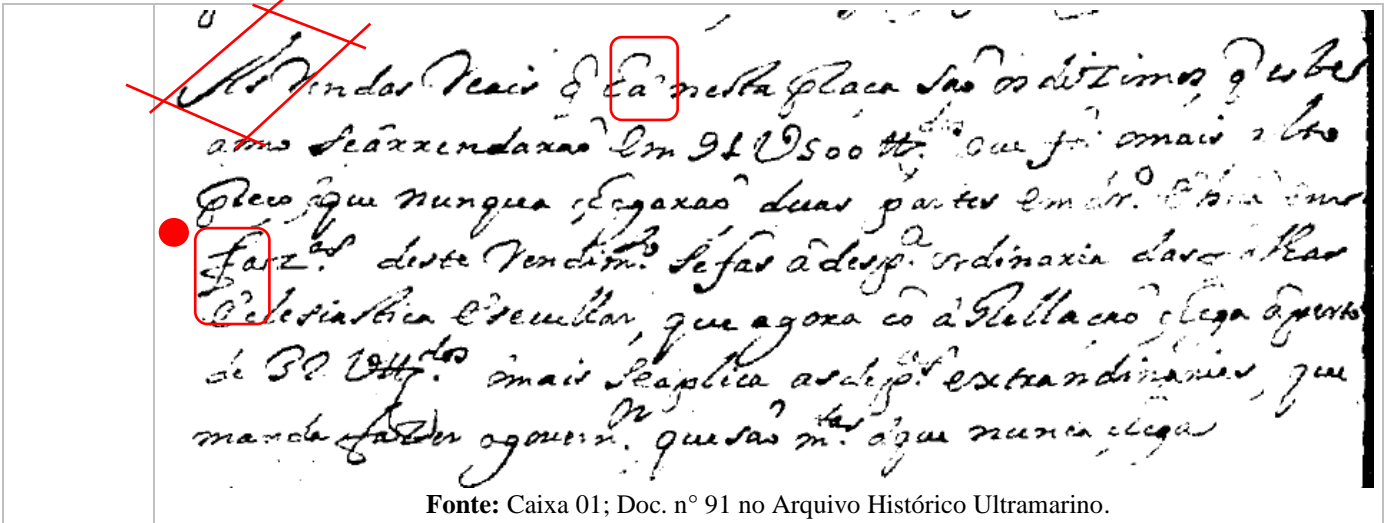 As Rendas Reais q̃ ẽa nesta praca são os dizimos, q̃ estes
anno Seárrendaraõ Em 91U500 ttz.dos Que foi omais alto
preco, que nunqua chegaraõ duas partes Em dr.o
farz.as deste Rendim.to sefas âdesp.a ordinaria das
Eclesiastica Esecullar, que agora cõ â Rellacaõ chega âperto
de 32 Uttz.dos omais Seaplica asdesp.as extraordinarias, que
manda fazer ogovern.or que saõ m.tas âque nunca chega
Fonte: Caixa 01; Doc. n° 91 no Arquivo Histórico Ultramarino.